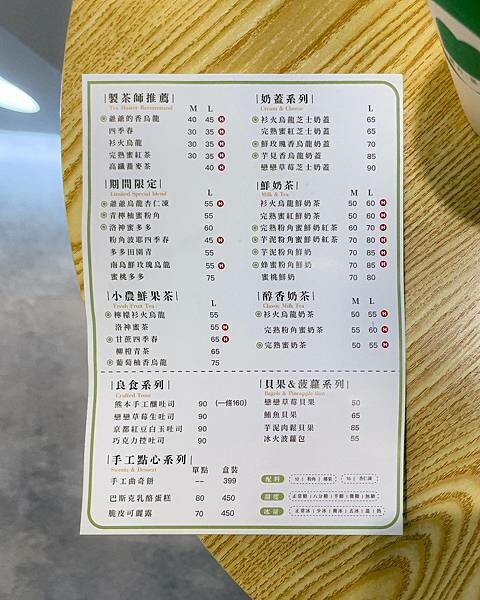 製茶師推薦
Tea Master Recommend M L
爺爺的香烏龍 40 45 H
四季春 30 35 H
衫火烏龍 30 35 H
完熟蜜紅茶 30 35 H
高纖蕎麥茶 40 H
期間限定
Limited Special Blend L
爺爺烏龍杏仁凍 55 H
青檸柚蜜粉角 55
洛神蜜多多 60
粉角波耶四季春 45 H
多多田園青 55
南島鮮玫瑰烏龍 55 H
蜜桃多多 75
小農鮮果茶
Fresh Fruit Tea L
檸檬衫火烏龍 55
洛神蜜茶 55 H
甘蔗四季春 65 H
柳橙青茶 65
葡萄柚香烏龍 75
奶蓋系列
Cream & Cheese L
衫火烏龍芝士奶蓋 65
完熟蜜紅芝士奶蓋 65
鮮玫瑰香烏龍奶蓋 70
芋見香烏龍奶蓋 85
戀戀草莓芝士奶蓋 90
鮮奶茶
Milk & Tea M L
衫火烏龍鮮奶茶 50 60 H
完熟蜜紅鮮奶茶 50 60 H
完熟粉角蜜鮮奶紅茶 60 70 H
芋泥粉角蜜鮮奶紅茶 70 80 H
芋泥粉角鮮奶 85 H
蜂蜜粉角鮮奶 70 85 H
蜜桃鮮奶 70 80
醇香奶茶
Classic Milk Tea M L
衫火烏龍奶茶 50 55 H
完熟粉角蜜奶茶 55 60 H
完熟蜜奶茶 50 55 H
良食系列
Crafted Toast
熊本手工釀吐司 90 (一條160)
戀戀草莓生吐司 90
京都紅豆白玉吐司 90
巧克力控吐司 90
貝果&菠蘿系列
Bagels & Pineapple Bun
戀戀草莓貝果 50
鮪魚貝果 65
芋泥肉鬆貝果 85
冰火菠蘿包 55
手工點心系列
Sweets & Dessert 單點 盒裝
手工曲奇餅 -- 399
巴斯克乳酪蛋糕 80 450
脆皮可麗露 70 450
配料 10 | 粉角 | 椰果 15 | 杏仁凍
甜度 正常糖 | 八分糖 | 半糖 | 微糖 | 無糖
冰量 正常冰 | 少冰 | 微冰 | 去冰 | 溫 | 熱